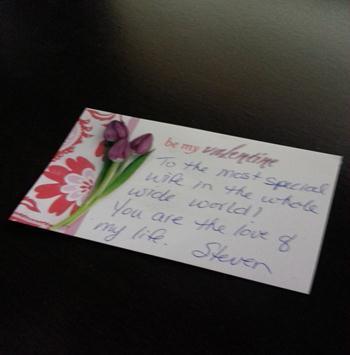 be my valentine
To the most special
wife in the whole
wide world!
You are the love of
my life.
Steven